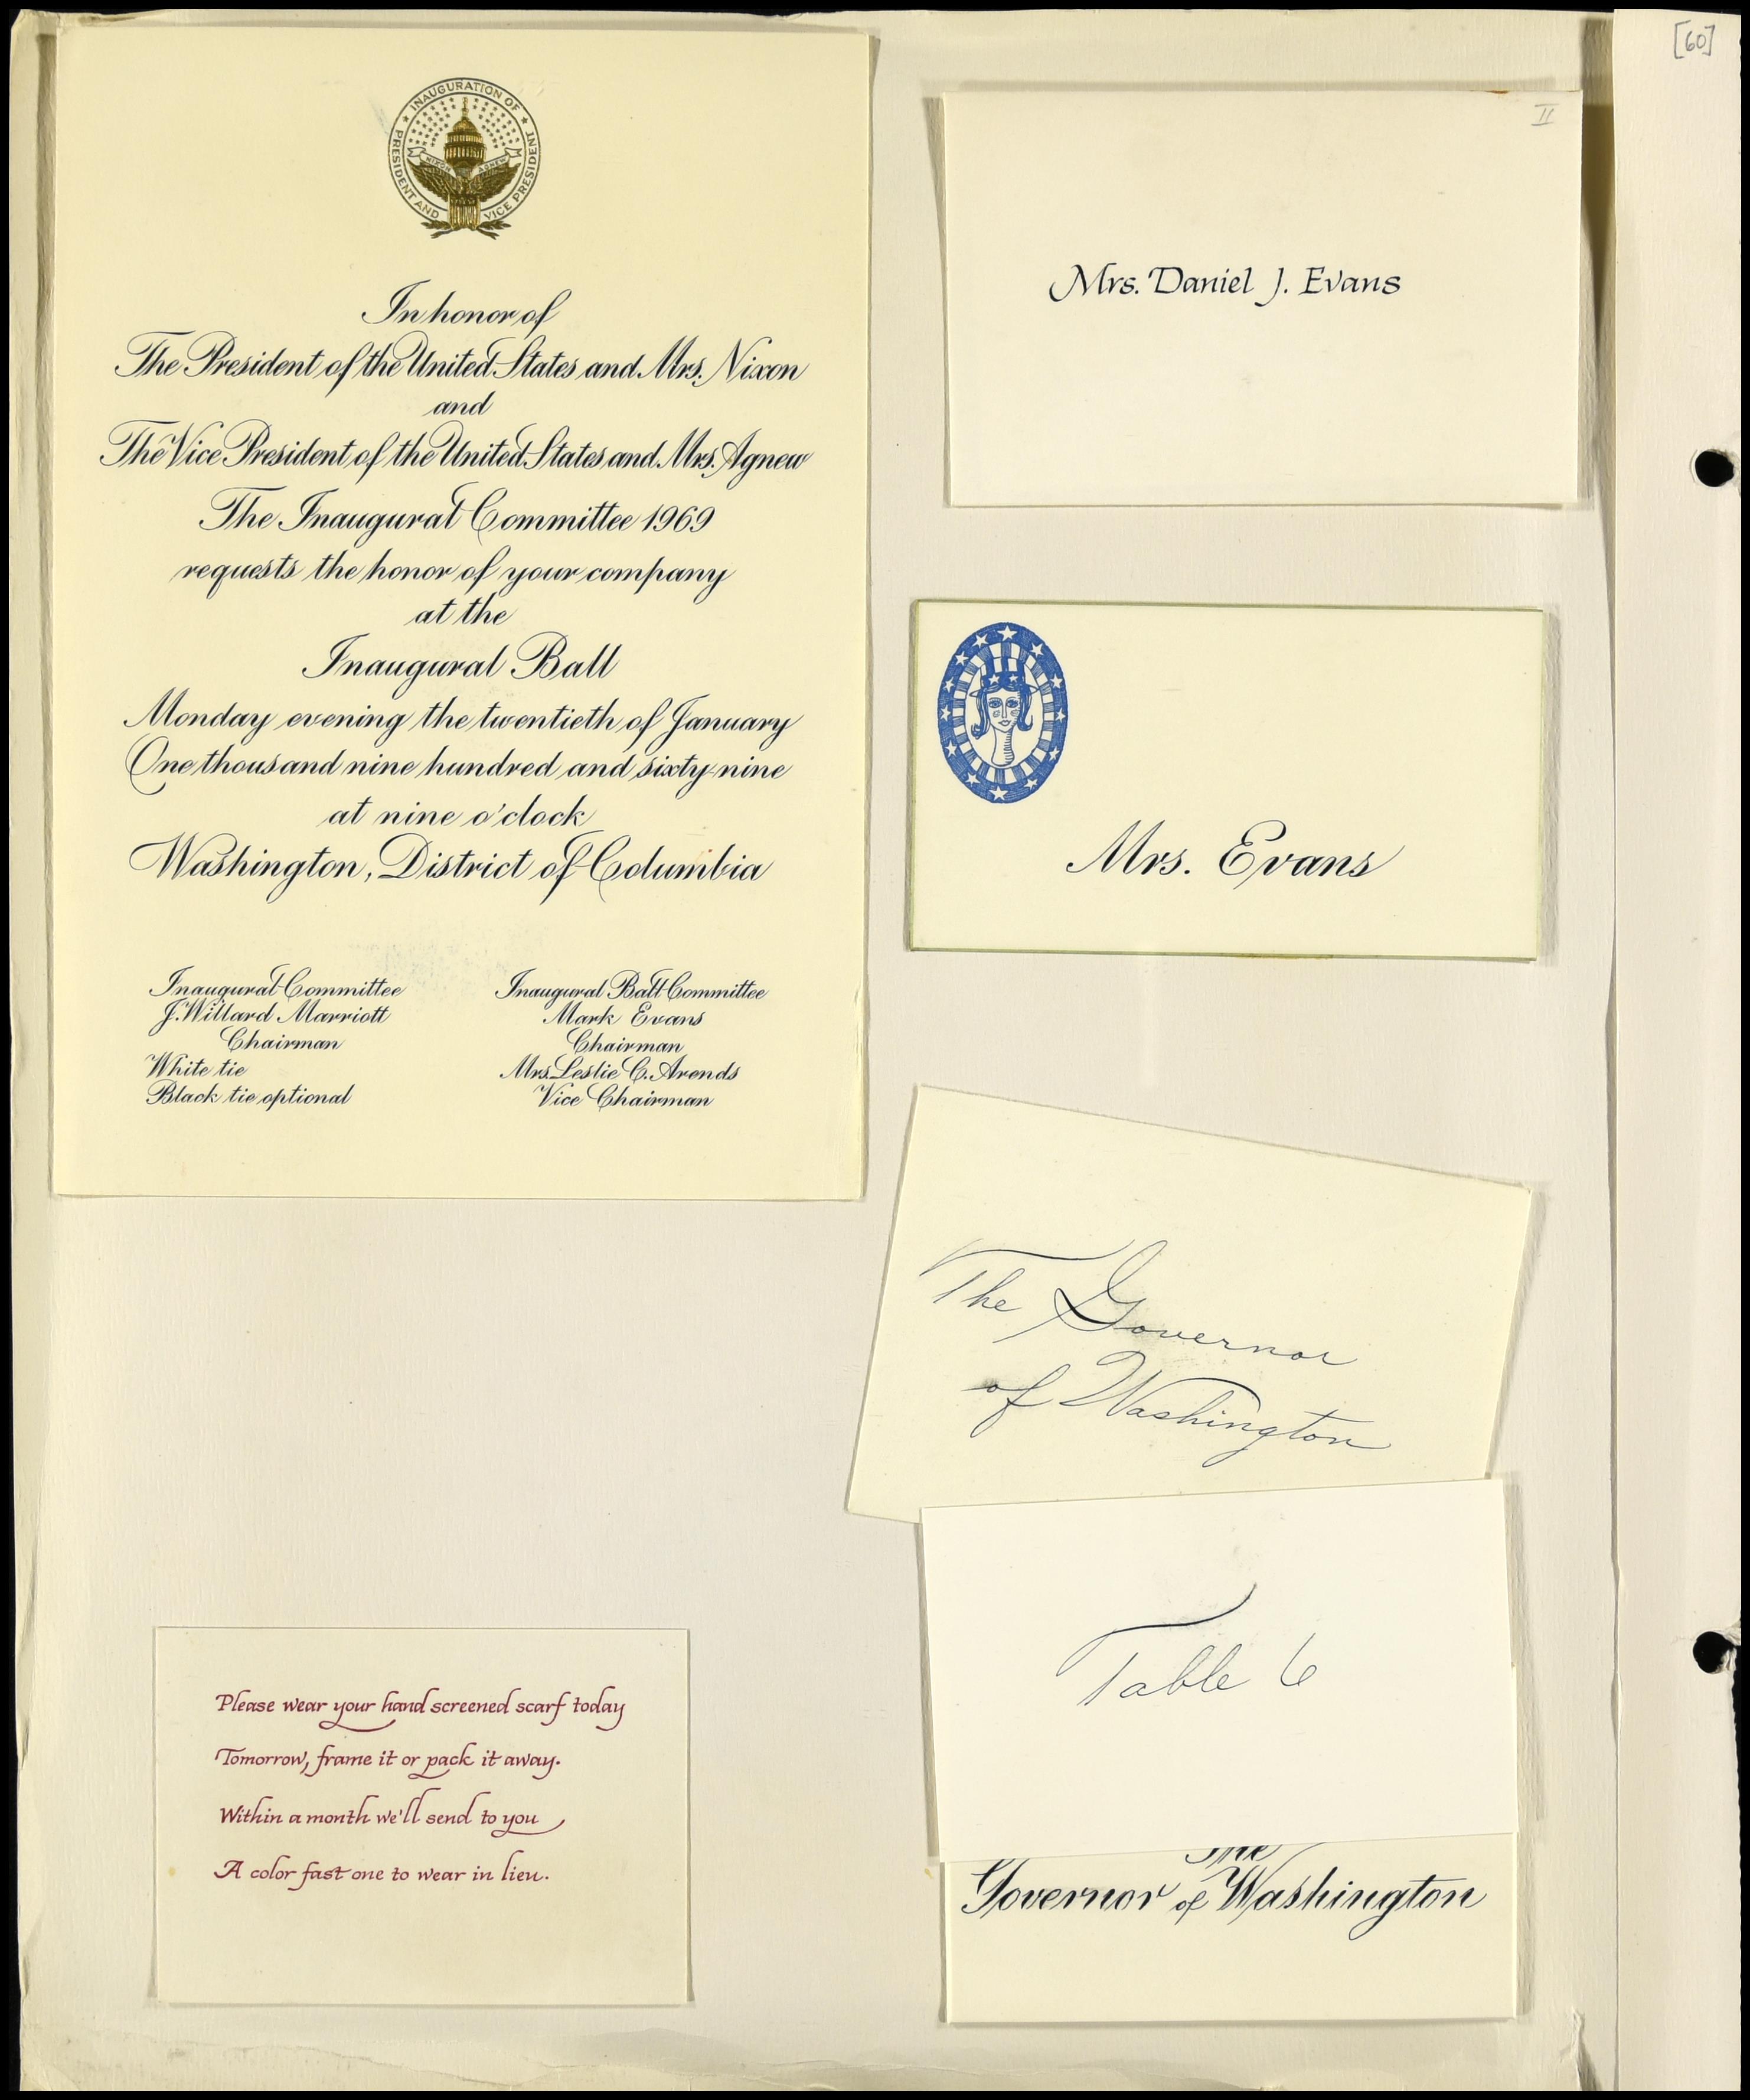 [60]
INAUGURATION OF PRESIDENT AND VICE PRESIDENT
NIXON AGNEW
In honor of
The President of the United States and Mrs. Nixon
and
The Vice President of the United States and Mrs. Agnew
The Inaugural Committee 1969
requests the honor of your company
at the
Inaugural Ball
Monday evening the twentieth of January
One thousand nine hundred and sixty-nine
at nine o'clock
Washington, District of Columbia
Inaugural Committee
J. Willard Marriott
Chairman
White tie
Black tie optional
Inaugural Ball Committee
Mark Evans
Chairman
Mrs. Leslie C. Arends
Vice Chairman
Please wear your hand screened scarf today
Tomorrow, frame it or pack it away.
Within a month we'll send to you
A color fast one to wear in lieu.
II
Mrs. Daniel J. Evans
Mrs. Evans
The Governor
of Washington
Table 6
The
Governor of Washington